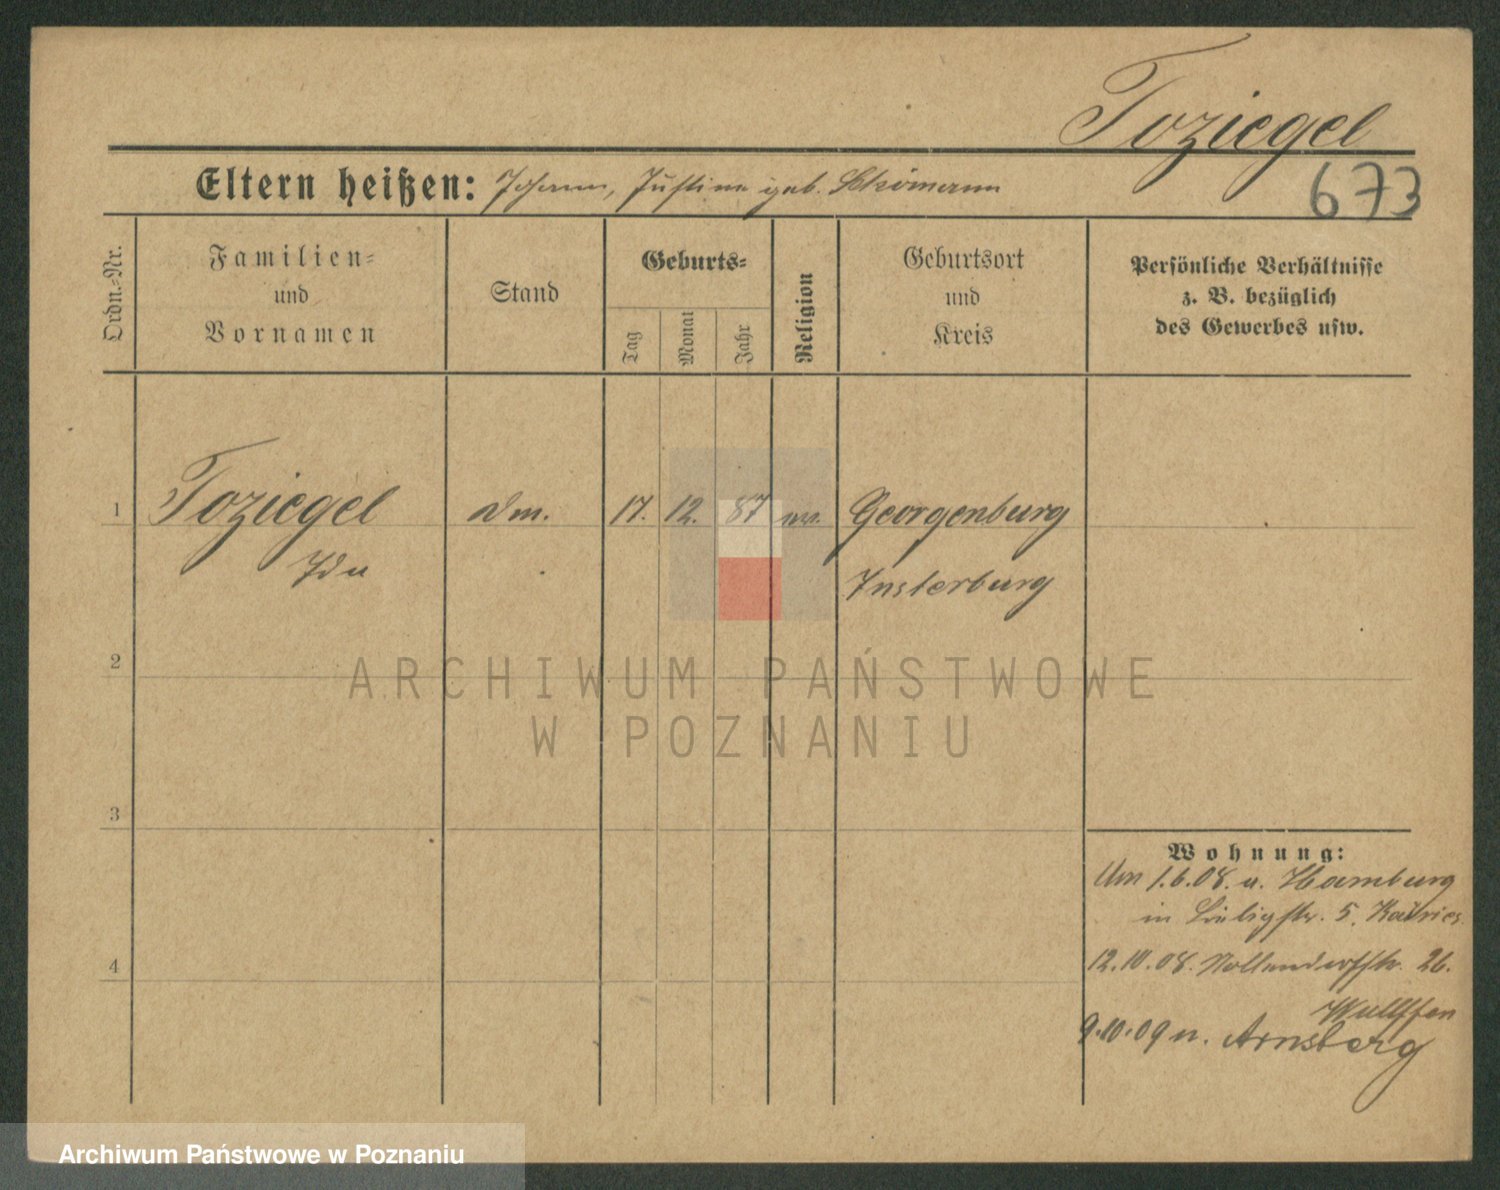 Toziegel
Eltern heißen: Johann, Justine geb. Skömann
673
Ordn.-Nr.
Familien- und Vornamen
Stand
Geburts-
Tag
Monat
Jahr
Religion
Geburtsort und Kreis
Persönliche Verhältnisse
z. B. bezüglich
des Gewerbes usw.
1 Toziegel dm. 17. 12. 87 Georgenburg
Ida Insterburg
2
ARCHIWUM PAŃSTWOWE
W POZNANIU
3
Wohnung:
Um 1.6.08. a. Hamburg
in Liebigstr. 5.
4
12.10.08. Nollendorfstr. 26.
Wulffen
9.10.09 n. Arnsberg
Archiwum Państwowe w Poznaniu